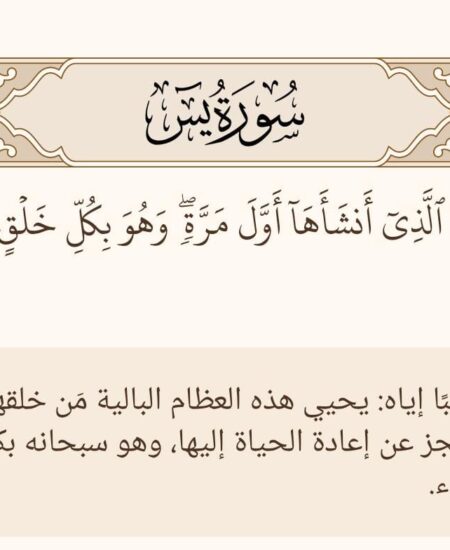 سُورَةُ يسٓ
ٱلَّذِيٓ أَنشَأَهَآ أَوَّلَ مَرَّةٖۖ وَهُوَ بِكُلِّ خَلۡقٍ
إياه: يحيي هذه العظام البالية مَن
عن إعادة الحياة إليها، وهو سبحانه